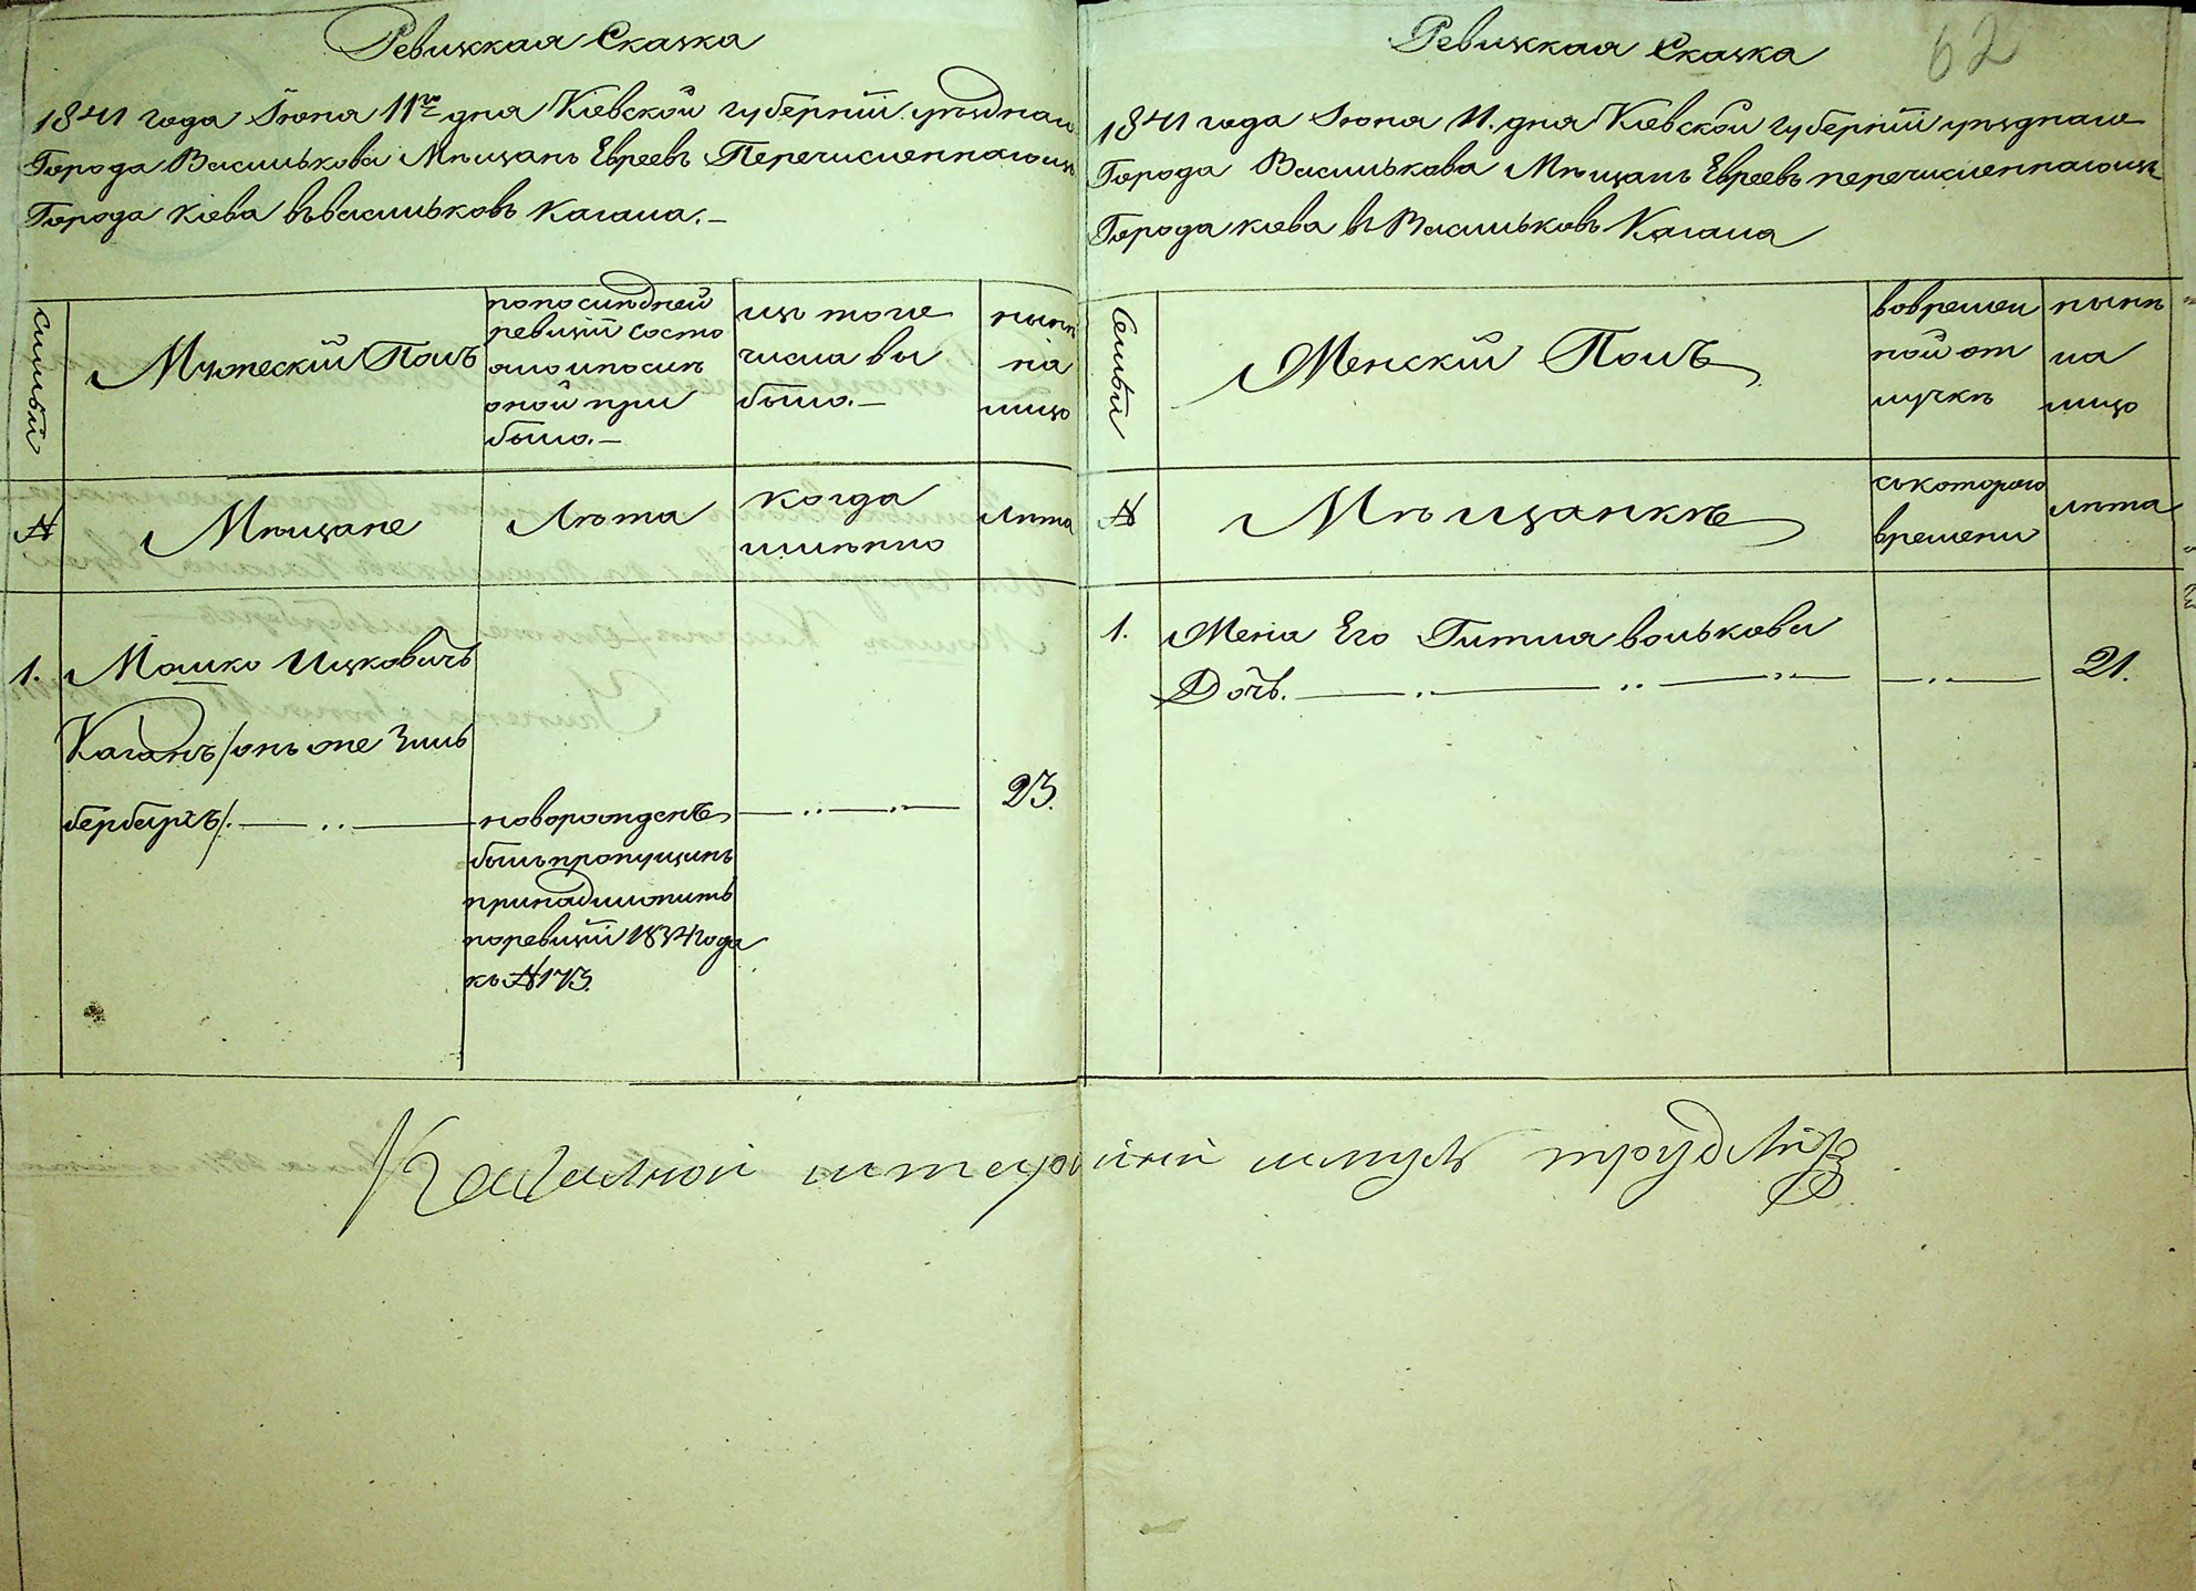 Ревизская Сказка
1841 года Iюна 11го дня Кiевской губернiи уѣзднаго
Города Василькова Мѣщанъ Евреевъ Перечисленнагоизъ
Города Кiева въВасильковъ Кагала.—
Семьи
Мужескiй Полъ
попослѣдней
ревизiи состо
ялоипослѣ
оной при
было.—
изъ того
числа вы
было.—
нынѣ
на
лицо
№
Мѣщане
Лѣта
когда
имѣнно
Лѣта
1.
Мошко Ицковичъ
Каганъ/онъ же Зиль
бербархъ/.
новорожденъ
былъпропущинъ
принадлижитъ
поревизiи 1834года
къ №173.
23.
Ревизская Сказка
62
1841 года Iюна 11. дня Кiевской губернiи уѣзднаго
Города Василькова Мѣщанъ Евреевъ перечисленнагоизъ
Города Кiева въ Васильковъ Кагала
Семьи
Женскiй Полъ
вовремен
ной от
лучкѣ
нынѣ
на
лицо
№
Мѣщанкѣ
съкоторого
времени
лѣта
1.
Жена Его Гитля волькова
Дочь.
21.
Кагалной